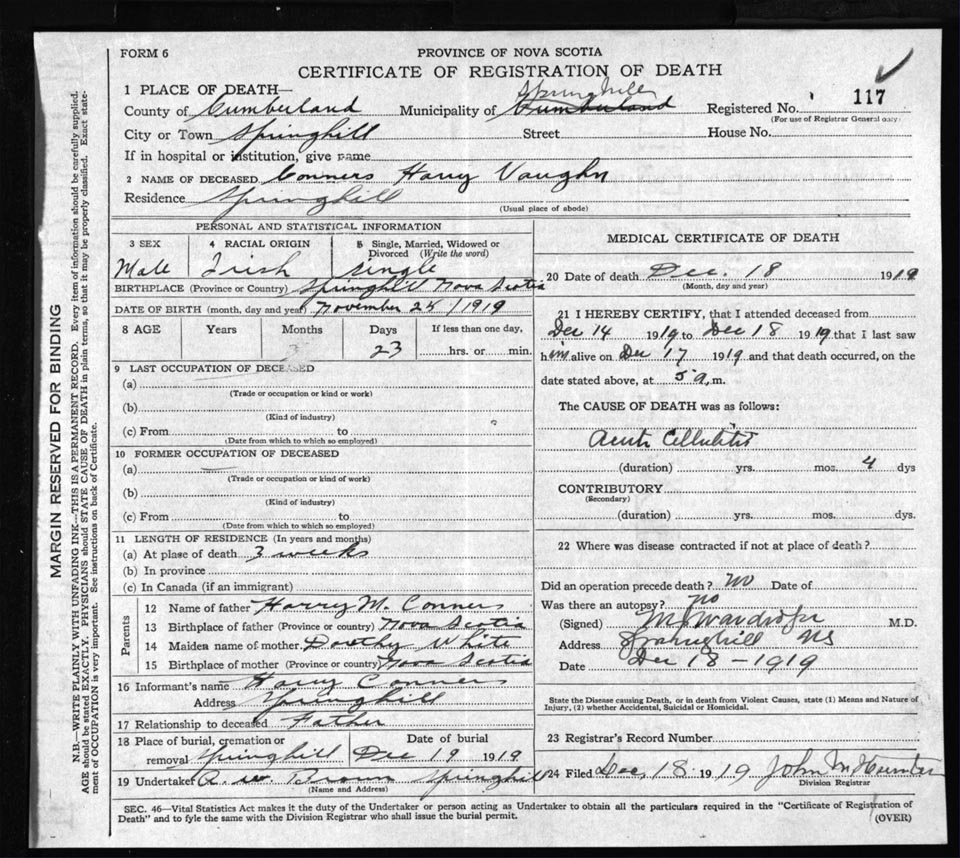 FORM 6
PROVINCE OF NOVA SCOTIA
CERTIFICATE OF REGISTRATION OF DEATH
1 PLACE OF DEATH—
Springhill
County of Cumberland Municipality of Cumberland Registered No. 117
(For use of Registrar General only)
City or Town Springhill Street House No.
If in hospital or institution, give name
2 NAME OF DECEASED Conners Harry Vaughn
Residence Springhill
(Usual place of abode)
PERSONAL AND STATISTICAL INFORMATION
3 SEX 4 RACIAL ORIGIN 5 Single, Married, Widowed or Divorced (Write the word)
Male Irish single
BIRTHPLACE (Province or Country) Springhill Nova Scotia
DATE OF BIRTH (month, day and year) November 25 / 1919
8 AGE Years Months Days If less than one day,
23 hrs. or min.
9 LAST OCCUPATION OF DECEASED
(a)
(Trade or occupation or kind or work)
(b)
(Kind of industry)
(c) From to
(Date from which to which so employed)
10 FORMER OCCUPATION OF DECEASED
(a) —
(Trade or occupation or kind of work)
(b)
(Kind of industry)
(c) From to
(Date from which to which so employed)
11 LENGTH OF RESIDENCE (In years and months)
(a) At place of death 3 weeks
(b) In province
(c) In Canada (if an immigrant)
Parents
12 Name of father Harry M. Conners
13 Birthplace of father (Province or country) Nova Scotia
14 Maiden name of mother Dorothy White
15 Birthplace of mother (Province or country) Nova Scotia
16 Informant's name Harry Conners
Address Springhill
17 Relationship to deceased Father
18 Place of burial, cremation or removal Springhill Date of burial Dec 19 1919
19 Undertaker A. W. Brown Springhill
(Name and Address)
MEDICAL CERTIFICATE OF DEATH
20 Date of death Dec. 18 1919
(Month, day and year)
21 I HEREBY CERTIFY, that I attended deceased from
Dec 14 1919 to Dec 18 1919 that I last saw
him alive on Dec 17 1919 and that death occurred, on the
date stated above, at 5 a, m.
The CAUSE OF DEATH was as follows:
Acute Cellulitis
(duration) yrs. mos. 4 dys
CONTRIBUTORY
(Secondary)
(duration) yrs. mos. dys.
22 Where was disease contracted if not at place of death?
Did an operation precede death? No Date of
Was there an autopsy? No
(Signed) Wardrope M.D.
Address Springhill NS
Date Dec 18 - 1919
State the Disease causing Death, or in death from Violent Causes, state (1) Means and Nature of
Injury, (2) whether Accidental, Suicidal or Homicidal.
23 Registrar's Record Number
24 Filed Dec 18 1919 John M Hunter
Division Registrar
SEC. 46—Vital Statistics Act makes it the duty of the Undertaker or person acting as Undertaker to obtain all the particulars required in the "Certificate of Registration of
Death" and to fyle the same with the Division Registrar who shall issue the burial permit.
(OVER)
MARGIN RESERVED FOR BINDING
N.B.—WRITE PLAINLY WITH UNFADING INK—THIS IS A PERMANENT RECORD. Every item of information should be carefully supplied.
AGE should be stated EXACTLY. PHYSICIANS should STATE CAUSE OF DEATH in plain terms, so that it may be properly classified. Exact state-
ment of OCCUPATION is very important. See instructions on back of Certificate.